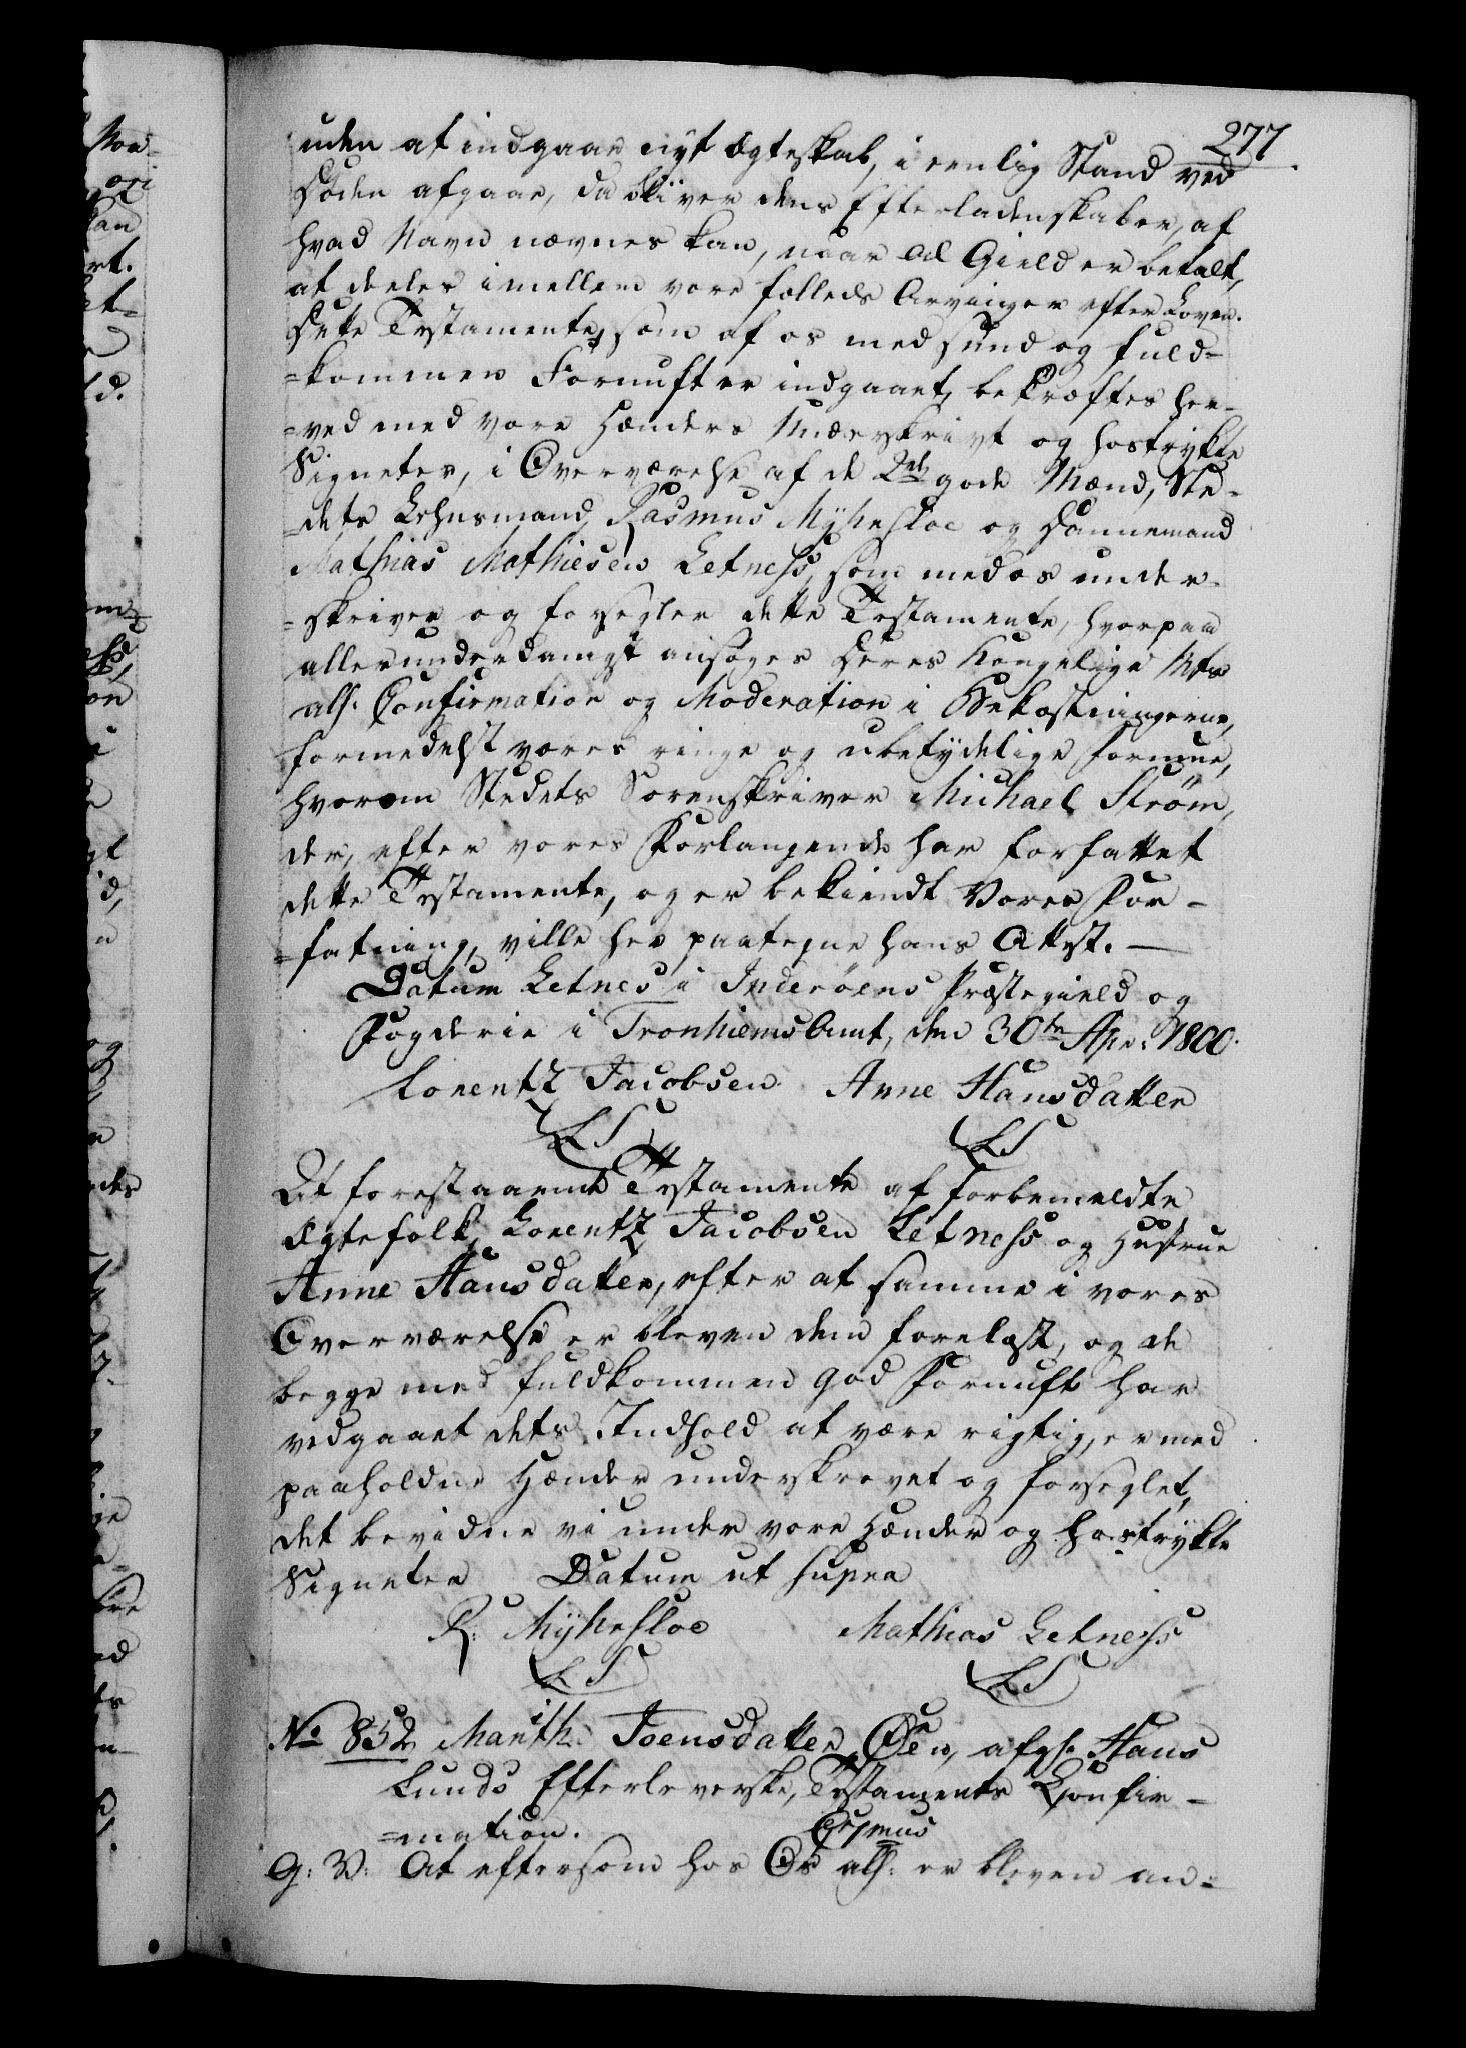 277
uden at indgaae nyt Ægteskab, i eenlig Stand ved
Døden afgaar, da bliver dens Efterladenskaber, af
hvad Navn nævnes kan, naar al Gield er betalt,
at deeles imellem vore fælleds Arvinger efter Loven.
Dette Testamente, som af os med sund og fuld-
=kommen Fornuft er indgaaet, bekræftes her-
=ved med vore Hænders Underskrivt og hostrykte
Signeter, i Overværelse af de 2de gode Mænd, Ste-
=dets Lehnsmand, Rasmus Mÿhresloe og Dannemand
Mathias Mathiesen Letness, som med os under-
=skriver og forsegler dette Testamente, hvorpaa
allerunderdanigst ansøges Deres Kongelige Mts
alh. Confirmation og Moderation i Bekostningerne,
formedelst vores ringe og ubetydelige Formue,
hvorom Stedets Sorenskriver Michael Strøm,
der, efter vores Forlangende har forfattet
dette Testamente, og er bekiendt Vores For-
=fatning, ville her paategne hans Attest. —
Datum Letnes i Inderøens Præstegield og
Fogderie i Tronhiems Amt, den 30te Apr: 1800.
Lorentz Jacobsen Anne Hansdatter
LS LS
At forestaaende Testamente af forbemeldte
Ægtefolk, Lorentz Jacobsen Letness og Hustrue
Anne Hansdatter, efter at samme i vores
Overværelse er bleven dem forelæst, og de
begge med fuldkommen god Fornuft har
vedgaaet dets Indhold at være rigtig, er med
paaholdne Hænder underskrevet og forseglet,
det bevidne vi under vore Hænder og hostrykte
Signeter Datum ut supra
R: Mÿhresloe Mathias Letness
LS LS
No 852 Marith Joensdatter Øen, afg. Hans
Lunds Efterleverske, Testaments Confir-
=mation.
G: V: At eftersom hos Os alh: er bleven an-=